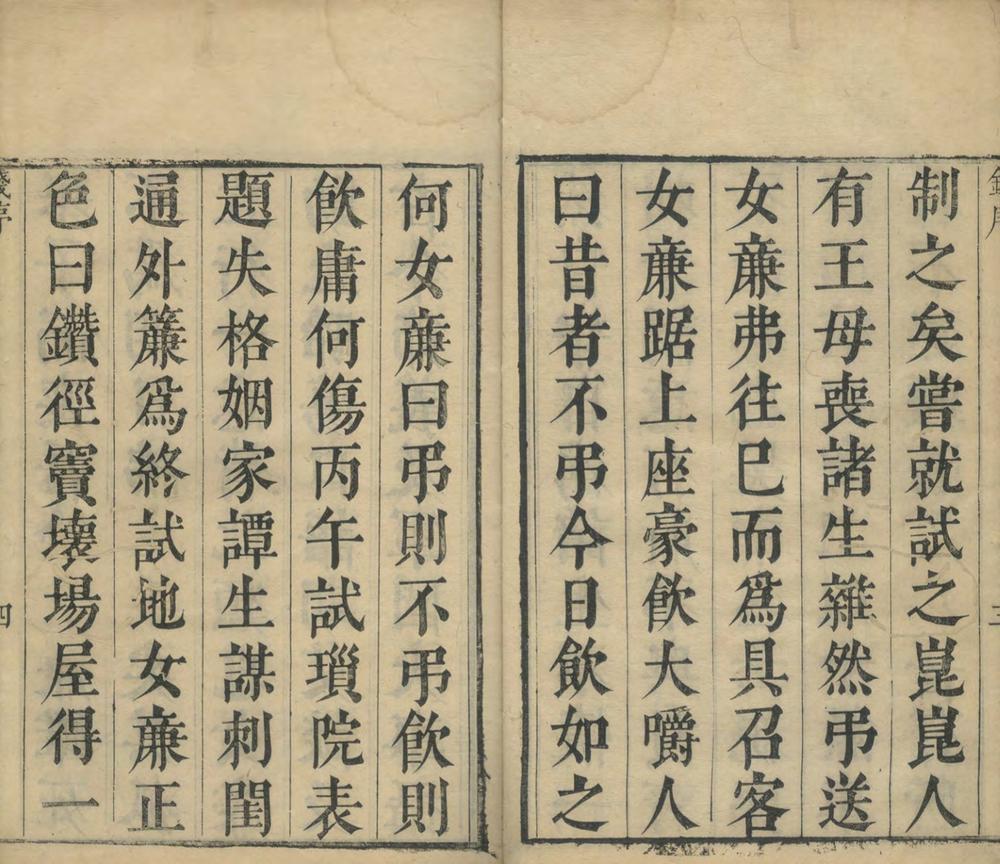 制之矣嘗就試之崑崑人
有王母喪諸生雜然弔送
女亷弗往巳而爲具召客
女亷踞上座豪飲大嚼人
曰昔者不弔今日飲如之
何女亷曰弔則不弔飲則
飲庸何傷丙午試瑣院表
題失格姻家譚生謀刺閨
通外簾爲終試地女亷正
色曰鑽徑竇壞場屋得一
四